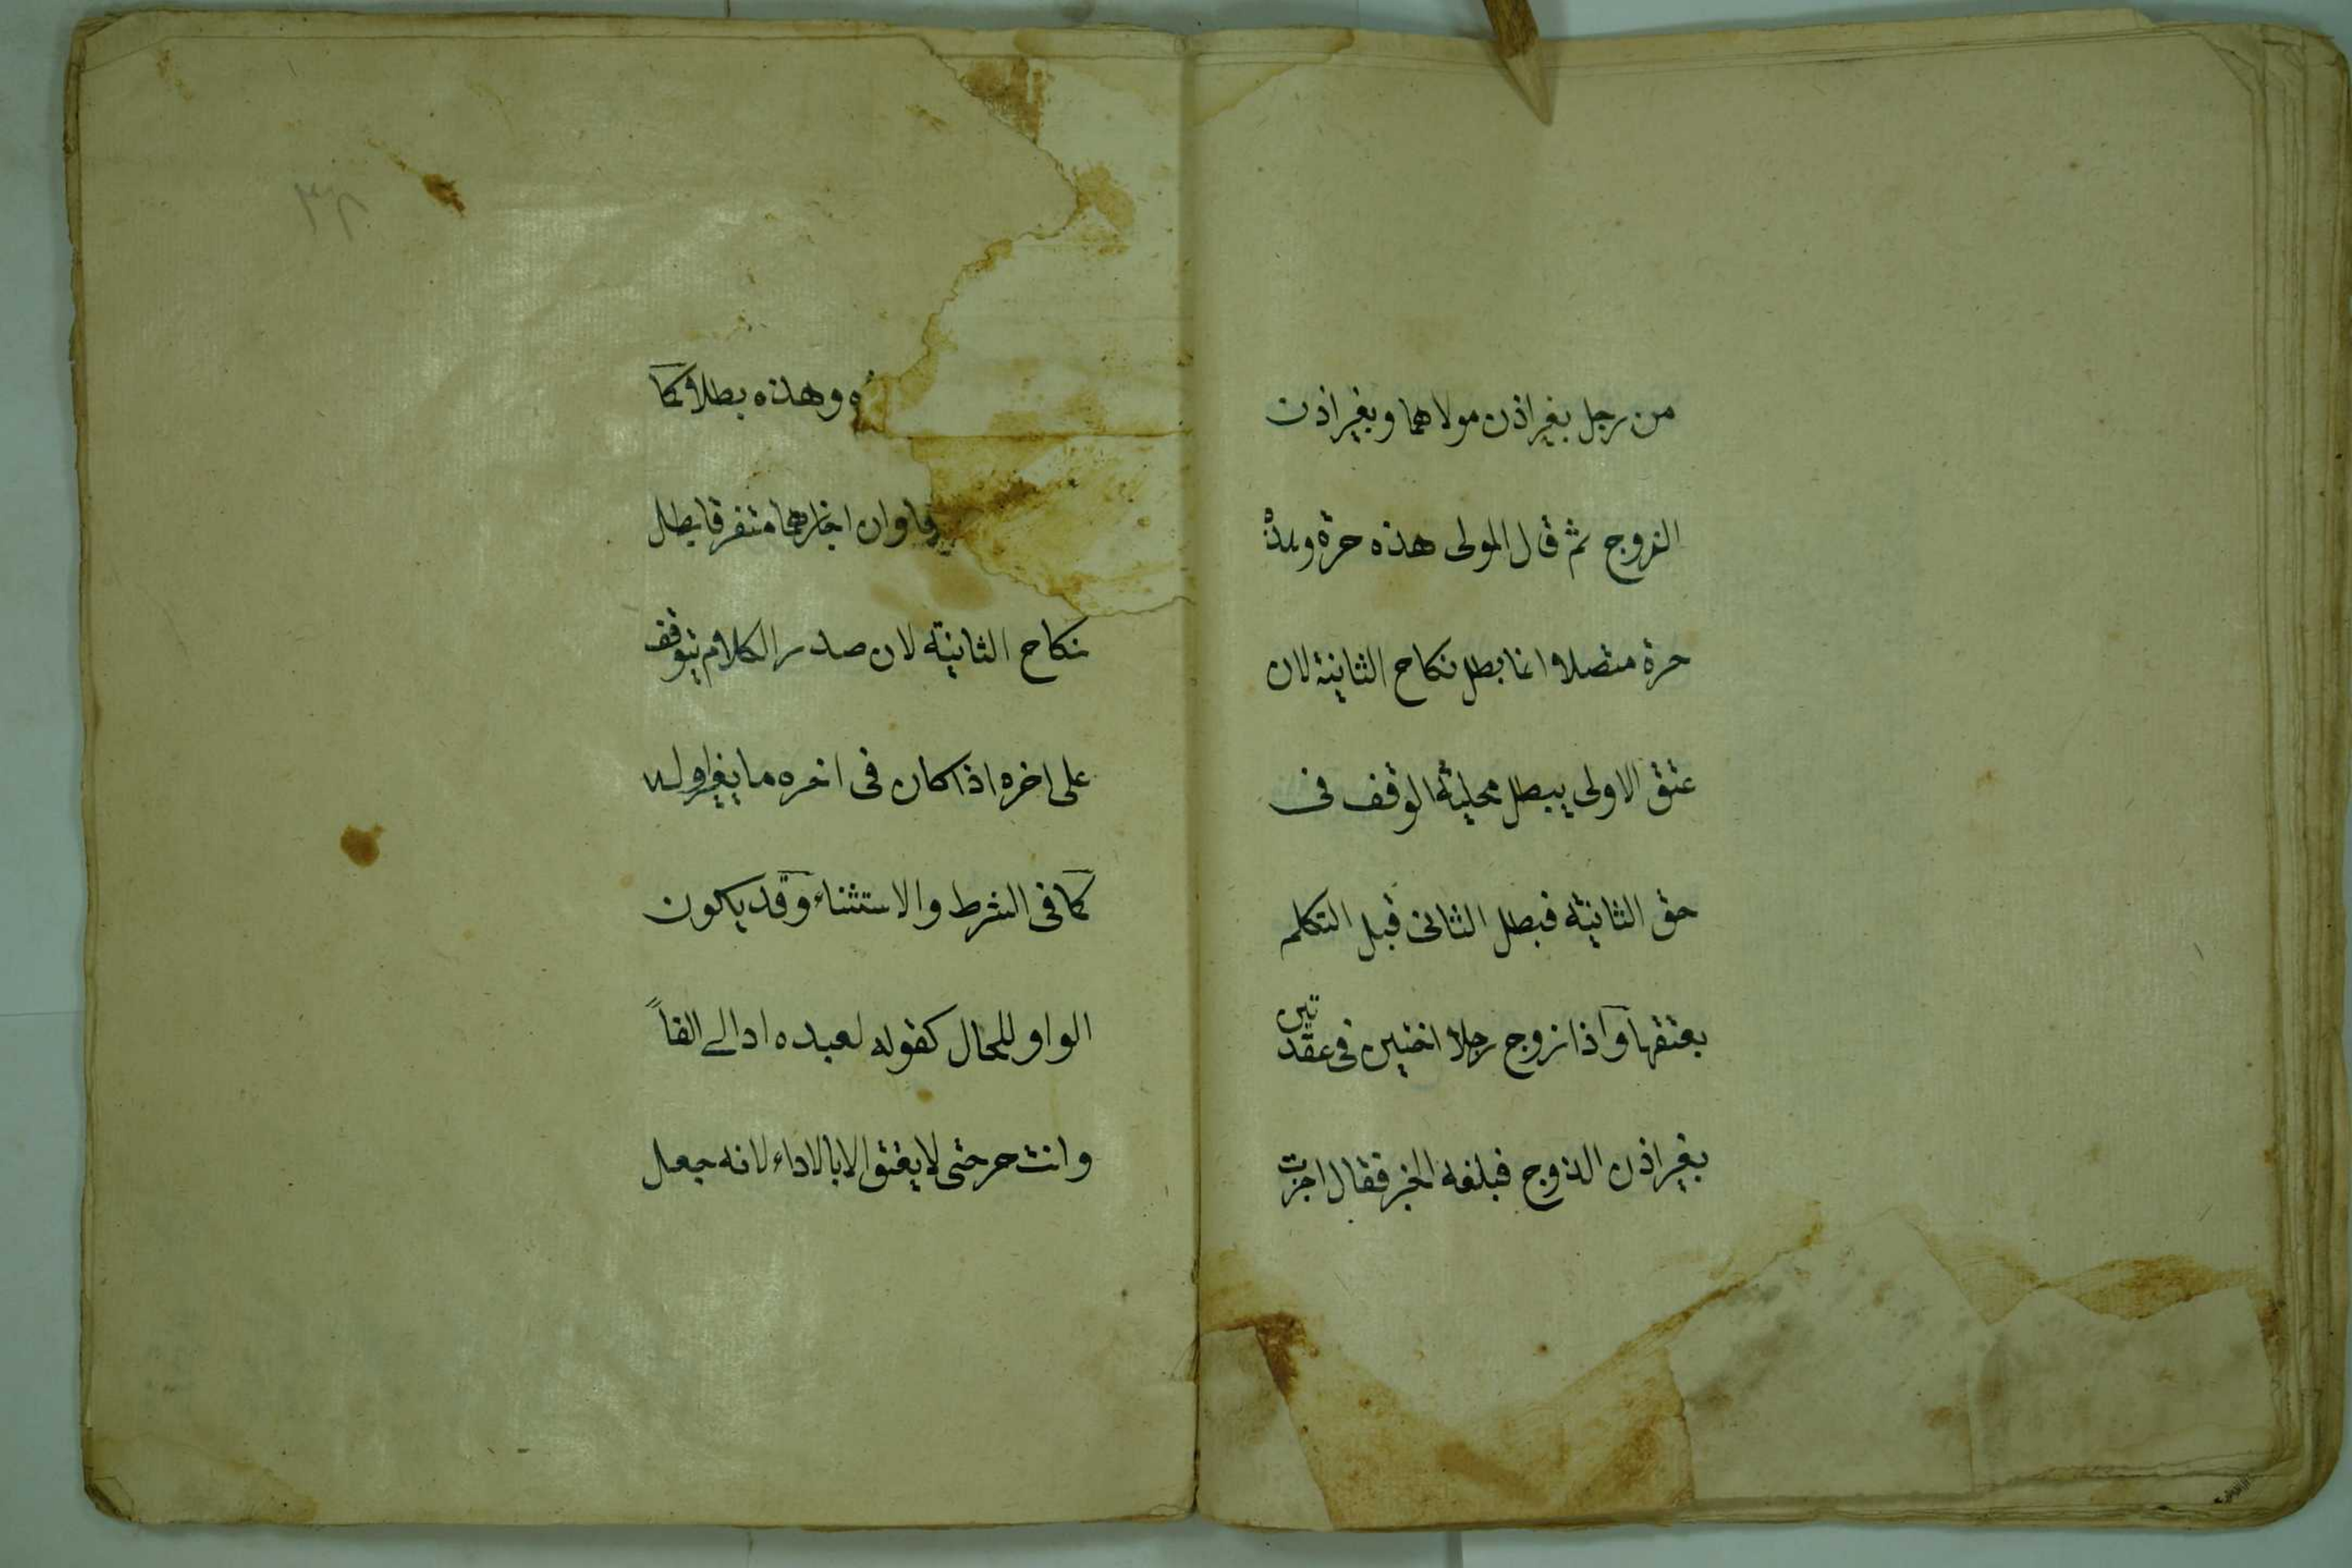 من رجل بغير اذن مولاهما وبغير اذن
الزوج ثم قال المولى هذه حرة وهذه
حرة متصلا انما بطل نكاح الثانية لان
عتق الاولى يبطل محلية الوقف فى
حق الثانية فبطل الثانى قبل التكلم
بعتقها واذا زوج رجلا اختين فى عقدتين
بغير اذن الزوج فبلغه الخبر فقال اجزت
وهذه بطلا كما
وان اجازهما متفرقا بطل
نكاح الثانية لان صدر الكلام يتوقف
على اخره اذا كان فى اخره ما يغير اوله
كما فى الشرط والاستثناء وقد يكون
الواو للحال كقوله لعبده اد الى الفاً
وانت حر حتى لا يعتق الا بالاداء لانه جعل